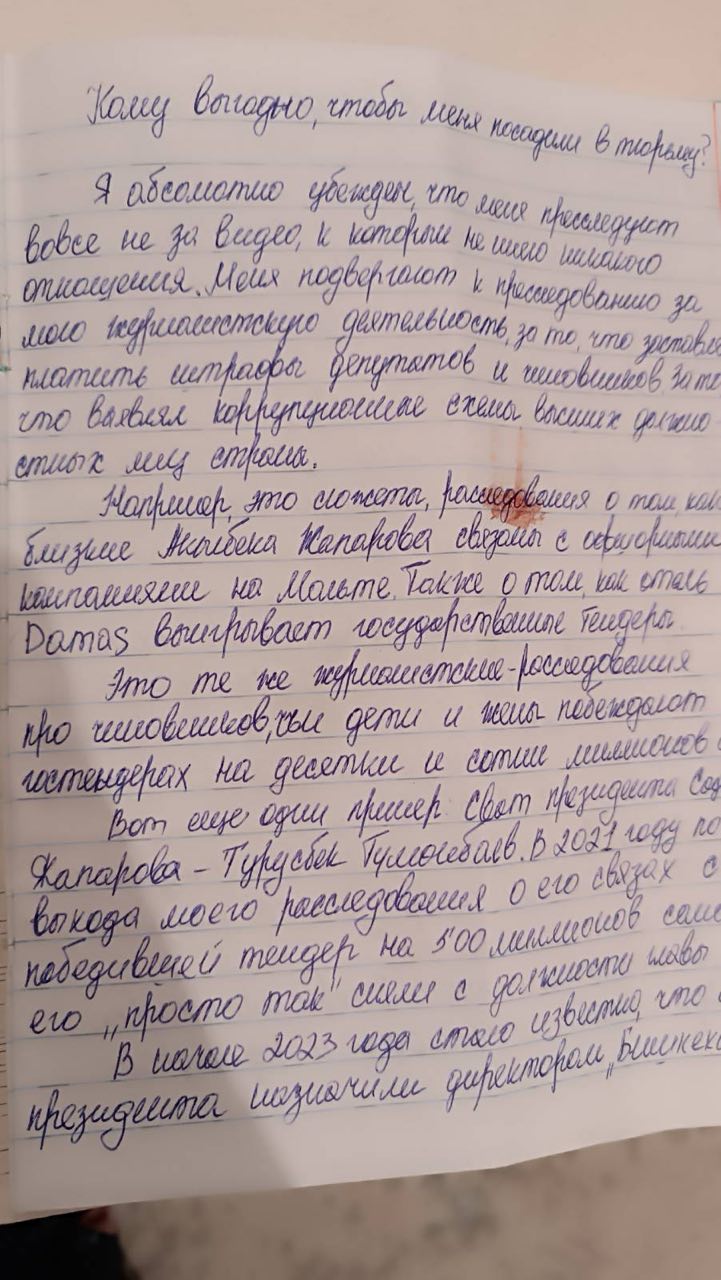 Кому выгодно, чтобы меня посадили в тюрьму?
Я абсолютно убежден, что меня преследуют
вовсе не за видео, к которым не имею никакого
отношения. Меня подвергают к преследованию за
мою журналистскую деятельность, за то, что заставлял
платить штрафы депутатов и чиновников, за то
что выявлял коррупционные схемы высших должно-
стных лиц страны.
Например, это сюжеты, расследования о том, как
близкие Акылбека Жапарова связаны с оффшорными
компаниями на Мальте. Также о том, как отель
Damas выигрывает государственные тендеры.
Это те же журналистские-расследования
про чиновников, чьи дети и жены побеждают в
гостендерах на десятки и сотни миллионов
Вот еще один пример. Сват президента Сад
Жапарова – Турусбек Тумонбаев. В 2021 году по
выхода моего расследования о его связах с
победившей тендер на 500 миллионов сомо
его „просто так" сняли с должности главы
В начале 2023 года стало известно, что
президента назначили директором „Бишкек